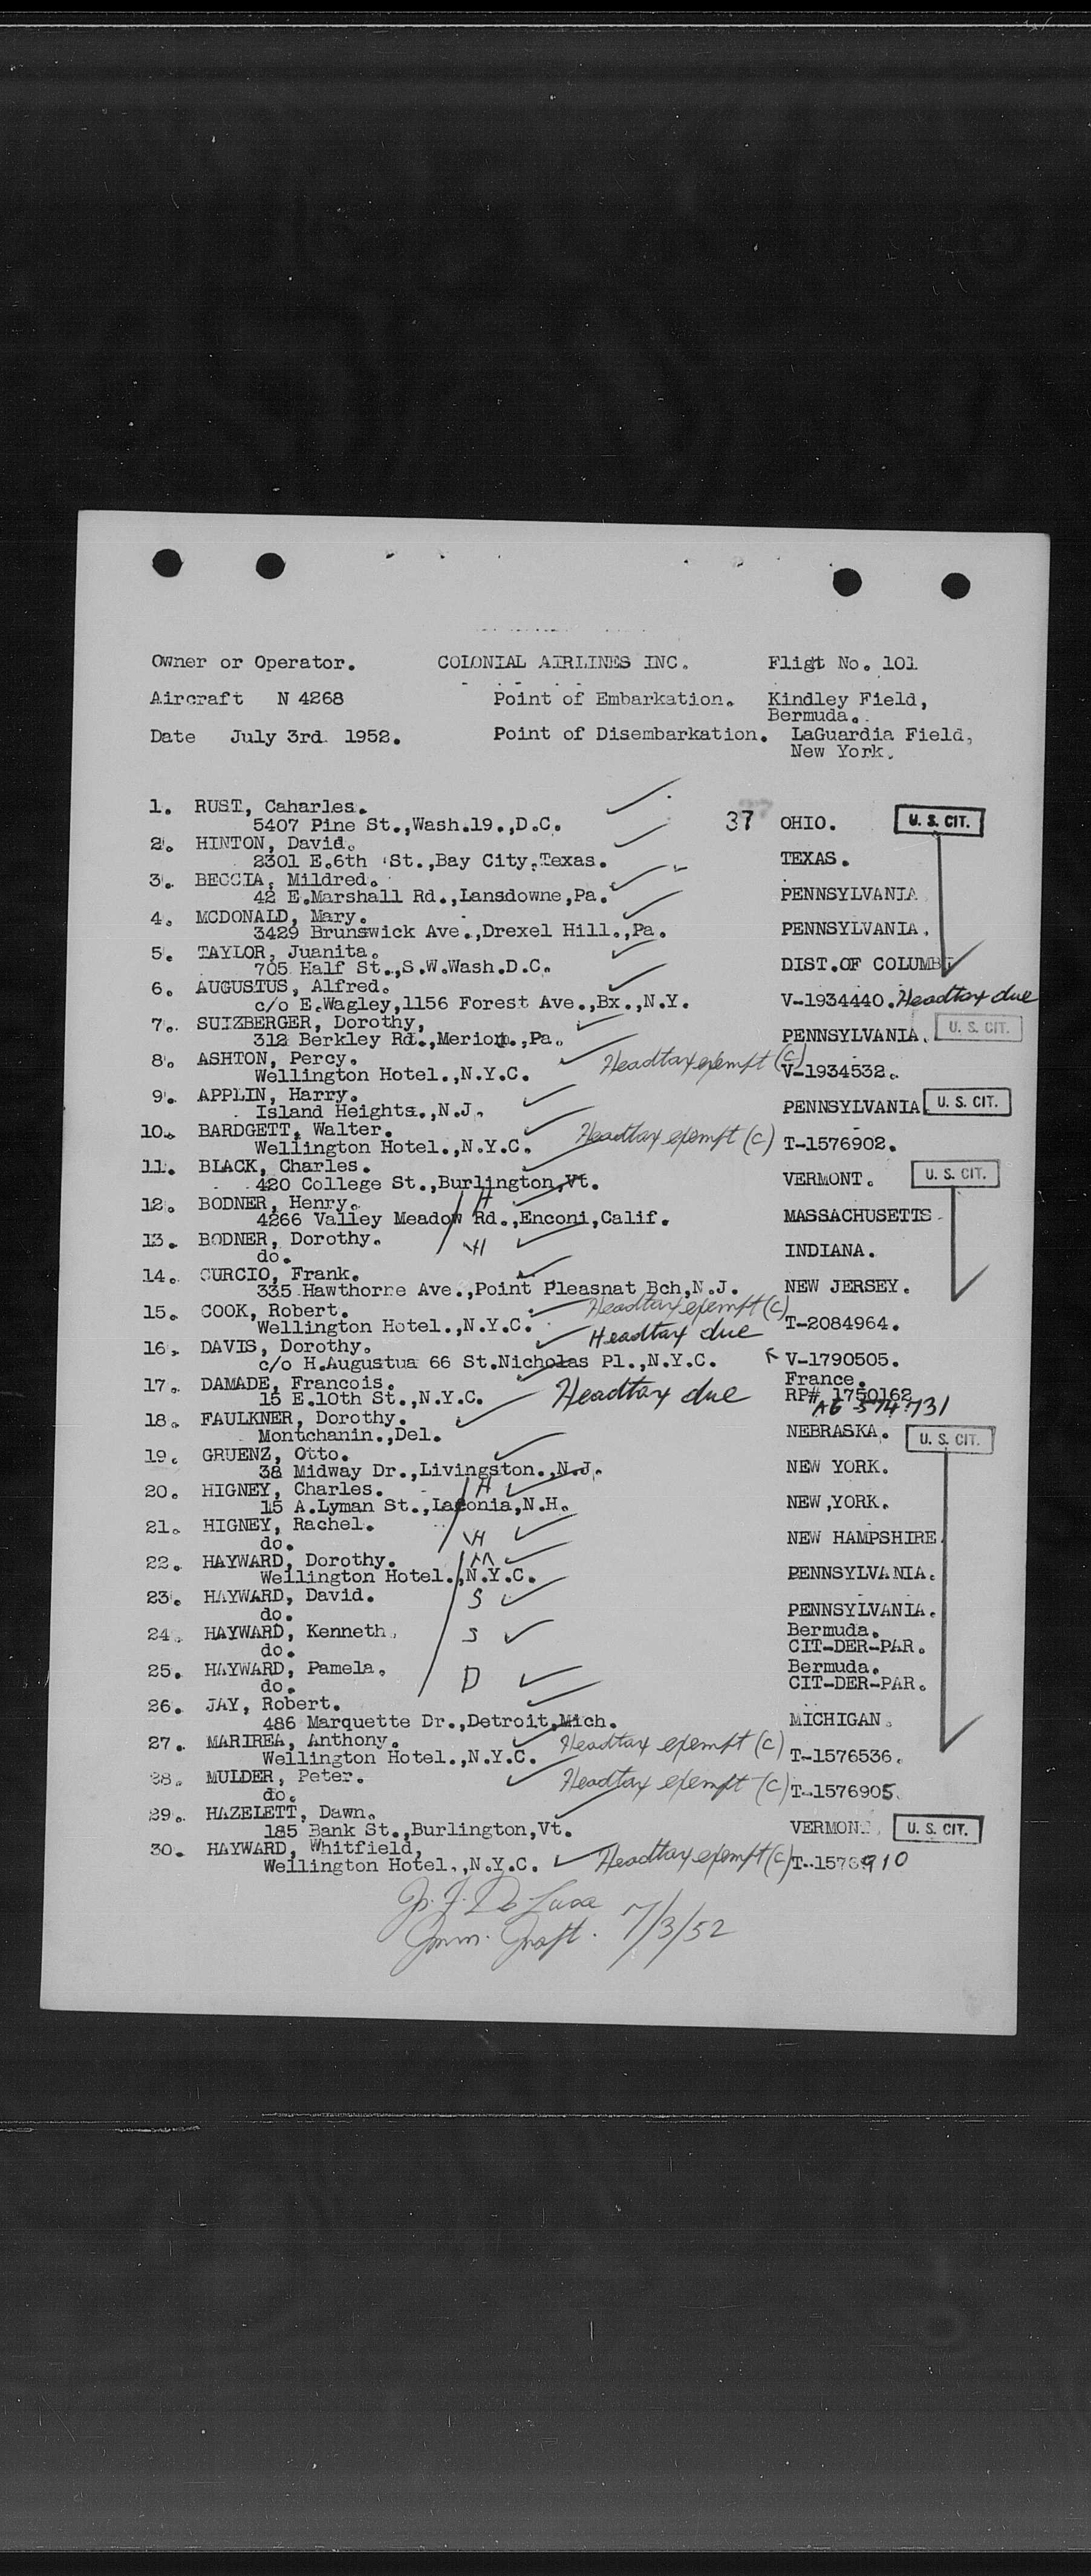 Owner or Operator. COLONIAL AIRLINES INC. Fligt No. 101
Aircraft N 4268 Point of Embarkation. Kindley Field,
Bermuda.
Date July 3rd 1952. Point of Disembarkation. LaGuardia Field,
New York.
1. RUST, Caharles.
5407 Pine St.,Wash.19.,D.C. 37 OHIO. U. S. CIT.
2. HINTON, David.
2301 E.6th St.,Bay City,Texas. TEXAS.
3. BECCIA, Mildred.
42 E.Marshall Rd.,Lansdowne,Pa. PENNSYLVANIA.
4. MCDONALD, Mary.
3429 Brunswick Ave.,Drexel Hill.,Pa. PENNSYLVANIA.
5. TAYLOR, Juanita.
705 Half St.,S.W.Wash.D.C. DIST.OF COLUMB
6. AUGUSTUS, Alfred.
c/o E.Wagley,1156 Forest Ave.,Bx.,N.Y. V-1934440. Headtax due
7. SUIZBERGER, Dorothy,
312 Berkley Rd.,Merion.,Pa. PENNSYLVANIA. U. S. CIT.
8. ASHTON, Percy. Headtax exempt (c)
Wellington Hotel.,N.Y.C. V-1934532.
9. APPLIN, Harry.
Island Heights.,N.J. PENNSYLVANIA U. S. CIT.
10. BARDGETT, Walter. Headtax exempt (c)
Wellington Hotel.,N.Y.C. T-1576902.
11. BLACK, Charles.
420 College St.,Burlington,Vt. VERMONT. U. S. CIT.
12. BODNER, Henry. H
4266 Valley Meadow Rd.,Enconi,Calif. MASSACHUSETTS
13. BODNER, Dorothy. W
do. INDIANA.
14. CURCIO, Frank.
335 Hawthorne Ave.,Point Pleasnat Bch,N.J. NEW JERSEY.
15. COOK, Robert. Headtax exempt (c)
Wellington Hotel.,N.Y.C. T-2084964.
16. DAVIS, Dorothy. Headtax due
c/o H.Augustua 66 St.Nicholas Pl.,N.Y.C. V-1790505.
17. DAMADE, Francois. France.
15 E.10th St.,N.Y.C. Headtax due RP# 1750162
A6 574 731
18. FAULKNER, Dorothy.
Montchanin.,Del. NEBRASKA. U. S. CIT.
19. GRUENZ, Otto.
38 Midway Dr.,Livingston.,N.J. NEW YORK.
20. HIGNEY, Charles. H
15 A.Lyman St.,Laconia,N.H. NEW ,YORK.
21. HIGNEY, Rachel. W
do. NEW HAMPSHIRE.
22. HAYWARD, Dorothy. M
Wellington Hotel.,N.Y.C. PENNSYLVANIA.
23. HAYWARD, David. S
do. PENNSYLVANIA.
24. HAYWARD, Kenneth. S Bermuda.
do. CIT-DER-PAR.
25. HAYWARD, Pamela. D Bermuda.
do. CIT-DER-PAR.
26. JAY, Robert.
486 Marquette Dr.,Detroit,Mich. MICHIGAN.
27. MARIREA, Anthony. Headtax exempt (c)
Wellington Hotel.,N.Y.C. T-1576536.
28. MULDER, Peter. Headtax exempt (c)
do. T-1576905.
29. HAZELETT, Dawn.
185 Bank St.,Burlington,Vt. VERMONT. U. S. CIT.
30. HAYWARD, Whitfield,
Wellington Hotel.,N.Y.C. Headtax exempt (c) T-1576910
7/3/52